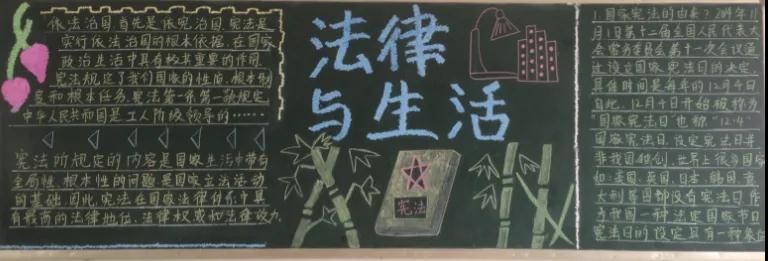 依法治国,首先是依宪治国,宪法是
实行依法治国的根本依据,在国家
政治生活中具有极其重要的作用,
宪法规定了我们国家的性质、根本制
度和根本任务,宪法第一条第一款规定
中华人民共和国是工人阶级领导的……
宪法所规定的内容是国家生活中带有
全局性、根本性的问题是国家立法活动
的基础,因此,宪法在国家法律体系中具
有最高的法律地位、法律权威和法律效力.
法律
与生活
宪法
1.国家宪法的由来?2014年11
月1日第十二届全国人民代表大
会常务委员会第十一次会议通
过设立国家宪法日的决定,
具体时间是每年的12月4日
自此,12月4日开始被称为
"国家宪法日"也称"12·4"
国家宪法日.设定宪法日并
非我国独创,世界上很多国家
如:美国、英国、日本、韩国、意
大利等国都设有宪法日,作
为我国一种法定国家节日
宪法日的设定具有一种象征